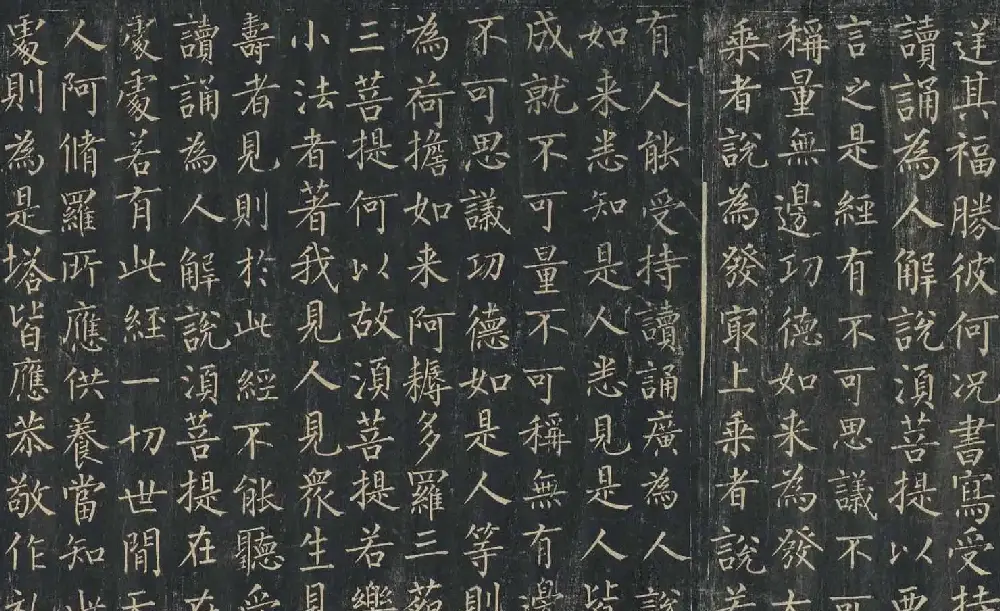 逆其福勝彼何況書寫受持
讀誦為人解說湏菩提以要
言之是經有不可思議不可
稱量無邊功德如来為發大
乗者說為發冣上乗者說若
有人能受持讀誦廣為人說
如来悉知是人悉見是人皆
成就不可量不可稱無有邊
不可思議功德如是人等則
為荷擔如来阿耨多羅三藐
三菩提何以故湏菩提若樂
小法者著我見人見衆生見
壽者見則於此經不能聽受
讀誦為人解說湏菩提在在
處處若有此經一切世間天
人阿脩羅所應供養當知此
處則為是塔皆應恭敬作礼